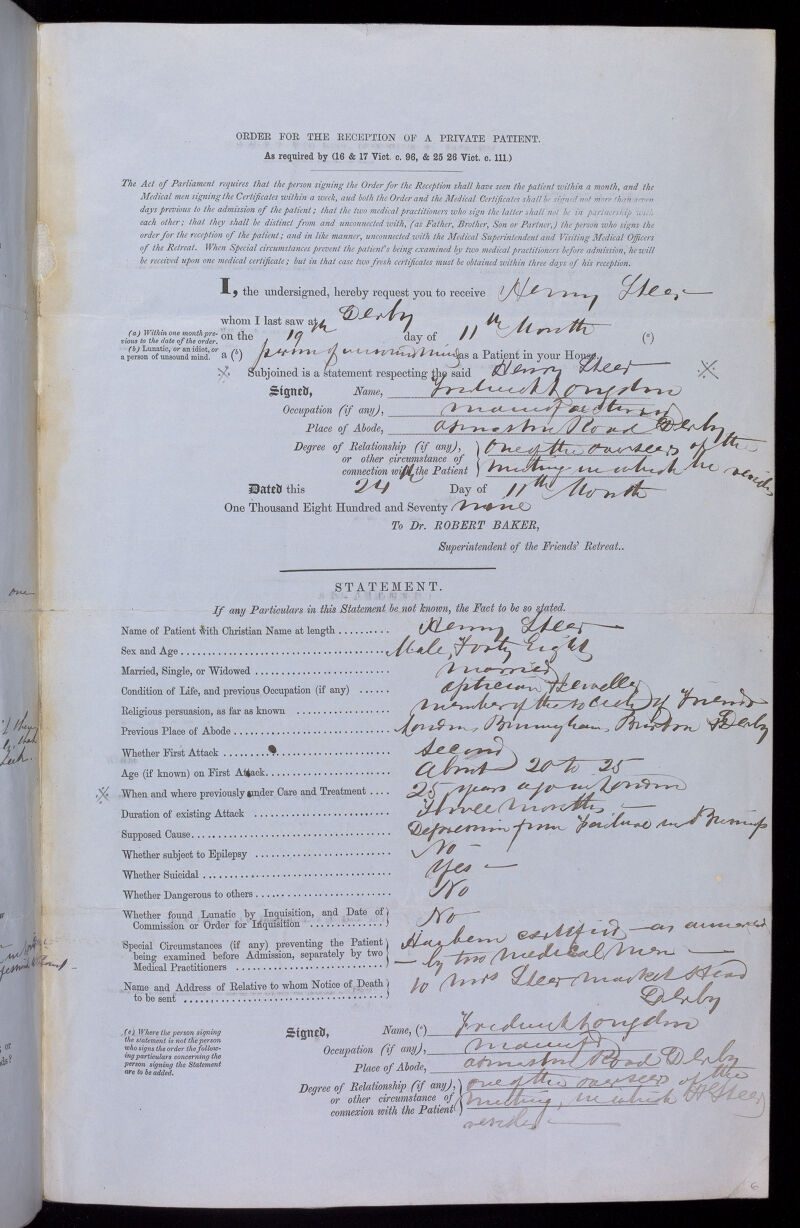 ORDER FOR THE RECEPTION OF A PRIVATE PATIENT.
As required by (16 & 17 Vict. c. 96, & 25 26 Vict. c. 111.)
The Act of Parliament requires that the person signing the Order for the Reception shall have seen the patient within a month, and the
Medical men signing the Certificates within a week, and both the Order and the Medical Certificates shall be signed not more than seven
days previous to the admission of the patient; that the two medical practitioners who sign the latter shall not be in partnership with
each other; that they shall be distinct from and unconnected with, (as Father, Brother, Son or Partner,) the person who signs the
order for the reception of the patient; and in like manner, unconnected with the Medical Superintendent and Visiting Medical Officers
of the Retreat. When Special circumstances prevent the patient's being examined by two medical practitioners before admission, he will
be received upon one medical certificate; but in that case two fresh certificates must be obtained within three days of his reception.
I, the undersigned, hereby request you to receive Henry Steer
whom I last saw at Derby
(a) Within one month previous to the date of the order.
(b) Lunatic, or an idiot, or a person of unsound mind.
on the 19th day of 11th Month (a)
a (b) person of unsound mind as a Patient in your House.
Subjoined is a statement respecting the said Henry Steer
Signed, Name, Frederick Longdon
Occupation (if any), manufacturer
Place of Abode, Osmaston Road Derby
Degree of Relationship (if any), or other circumstance of connection with the Patient } One of the overseers of the
meeting in which he resides
Dated this 24th Day of 11th Month
One Thousand Eight Hundred and Seventy nine
To Dr. ROBERT BAKER,
Superintendent of the Friends' Retreat..
STATEMENT.
If any Particulars in this Statement be not known, the Fact to be so stated.
Name of Patient with Christian Name at length .......... Henry Steer
Sex and Age .......... Male, Forty Eight
Married, Single, or Widowed .......... married
Condition of Life, and previous Occupation (if any) ...... optician & Jeweller
Religious persuasion, as far as known .......... member of the society of Friends
Previous Place of Abode .......... London, Birmingham, Buxton & Derby
Whether First Attack .......... Second
Age (if known) on First Attack .......... About 20 to 25
When and where previously under Care and Treatment .... 25 years ago in London
Duration of existing Attack .......... Three months
Supposed Cause .......... Depression from Failure in Business
Whether subject to Epilepsy .......... No
Whether Suicidal .......... Yes
Whether Dangerous to others .......... No
Whether found Lunatic by Inquisition, and Date of
Commission or Order for Inquisition .......... No
Special Circumstances (if any) preventing the Patient Has been certified as annexed
being examined before Admission, separately by two
Medical Practitioners .......... by two medical men
Name and Address of Relative to whom Notice of Death to Mrs Steer market Head
to be sent .......... Derby
(c) Where the person signing the statement is not the person who signs the order the following particulars concerning the person signing the Statement are to be added.
Signed, Name, (c) Frederick Longdon
Occupation (if any), manuf
Place of Abode, Osmaston Road Derby
Degree of Relationship (if any), one of the overseers of the
or other circumstance of meeting, in which H Steer
connexion with the Patient resides
6